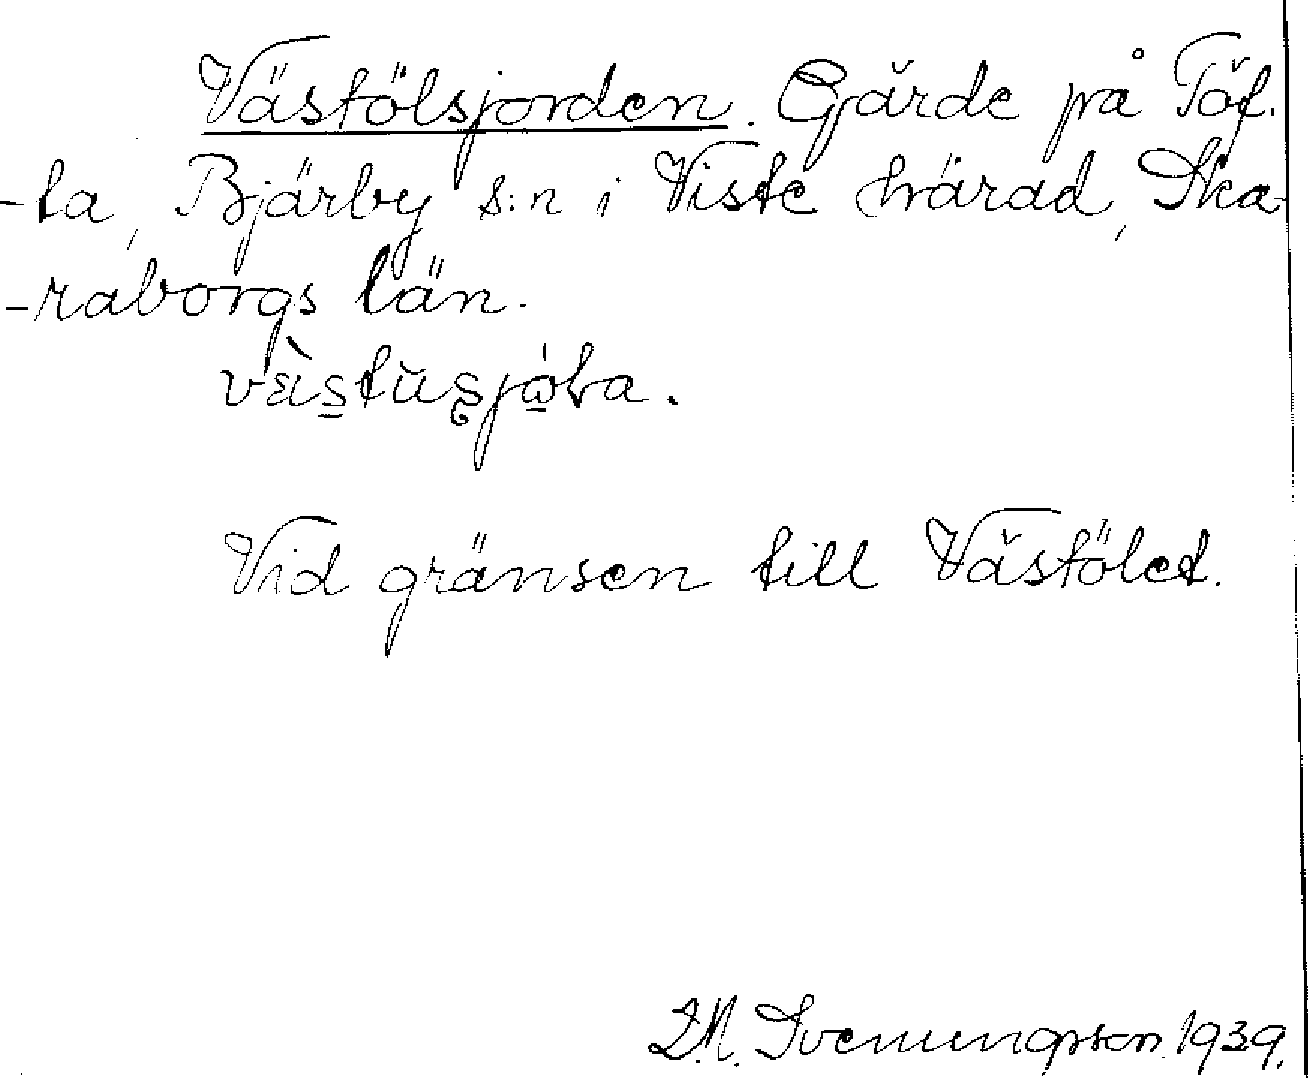 Västölsjorden. Gärde på Töf-
-ta, Bjärby s:n i Viste härad, Ska-
-raborgs län.
Vid gränsen till Västölet.
Svenungsson. 1939.